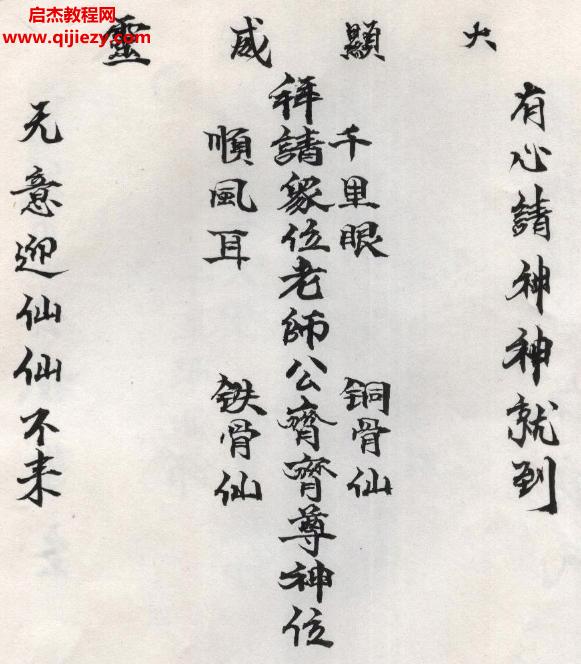 启杰教程网
www.qijiezy.com
大顯威靈
有心請神神就到
千里眼
銅骨仙
拜請眾位老師公齊齊尊神位
順風耳
鉄骨仙
无意迎仙仙不来